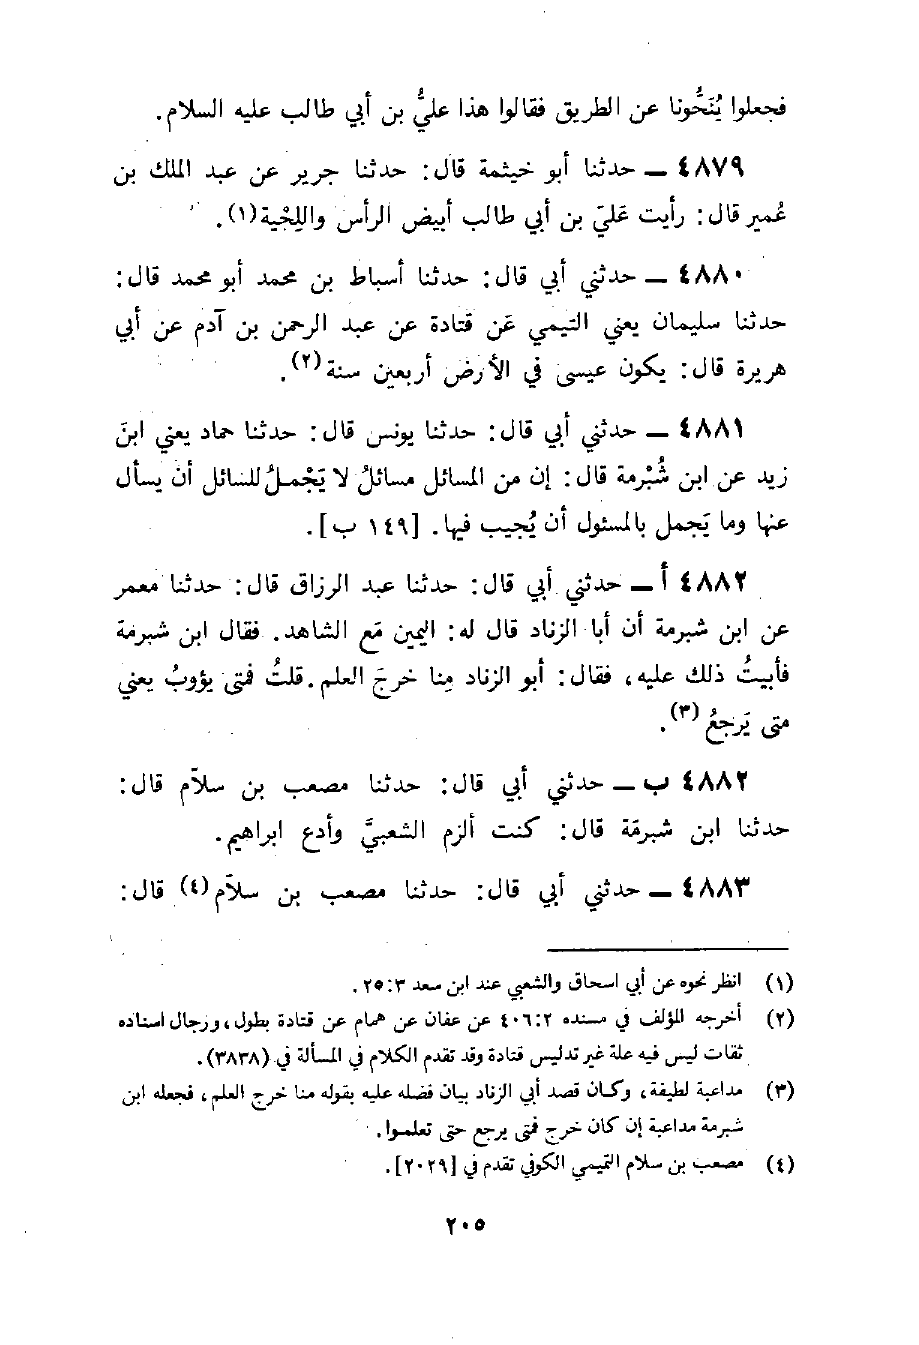 فجعلوا يُنَحُّونا عن الطريق فقالوا هذا عليُّ بن أبي طالب عليه السلام.
٤٨٧٩ ــ حدثنا أبو خيثمة قال: حدثنا جرير عن عبد الملك بن
عُمير قال: رأيت عَليّ بن أبي طالب أبيض الرأس واللِحْية(١).
٤٨٨٠ ــ حدثني أبي قال: حدثنا أسباط بن محمد أبو محمد قال:
حدثنا سليمان يعني التيمي عَن قتادة عن عبد الرحمن بن آدم عن أبي
هريرة قال: يكون عيسى في الأرض أربعين سنة(٢).
٤٨٨١ ــ حدثني أبي قال: حدثنا يونس قال: حدثنا حماد يعني ابنَ
زيد عن ابن شُبْرمة قال: إن من المسائل مسائلُ لا يَجْملُ للسائل أن يسأل
عنها وما يَجمل بالمسئول أن يُجيب فيها. [١٤٩ ب].
٤٨٨٢ أ ــ حدثني أبي قال: حدثنا عبد الرزاق قال: حدثنا معمر
عن ابن شبرمة أن أبا الزناد قال له: اليمين مَع الشاهد. فقال ابن شبرمة
فأبيتُ ذلك عليه، فقال: أبو الزناد مِنا خرجَ العلم. قلتُ فمتى يؤوبُ يعني
متى يَرجعُ(٣).
٤٨٨٢ ب ــ حدثني أبي قال: حدثنا مصعب بن سلاّم قال:
حدثنا ابن شبرمَة قال: كنت ألزم الشعبيَّ وأدع ابراهيم.
٤٨٨٣ ــ حدثني أبي قال: حدثنا مصعب بن سلاّم(٤) قال:
(١) انظر نحوه عن أبي اسحاق والشعبي عند ابن سعد ٢٥:٣.
(٢) أخرجه المؤلف في مسنده ٤٠٦:٢ عن عفان عن همام عن قتادة بطول، ورجال اسناده
ثقات ليس فيه علة غير تدليس قتادة وقد تقدم الكلام في المسألة في (٣٨٣٨).
(٣) مداعبة لطيفة، وكان قصد أبي الزناد بيان فضله عليه بقوله منا خرج العلم، فجعله ابن
شبرمة مداعبة إن كان خرج فمتى يرجع حتى تعلموا.
(٤) مصعب بن سلام التميمي الكوفي تقدم في [٢٠٢٩].
٢٠٥